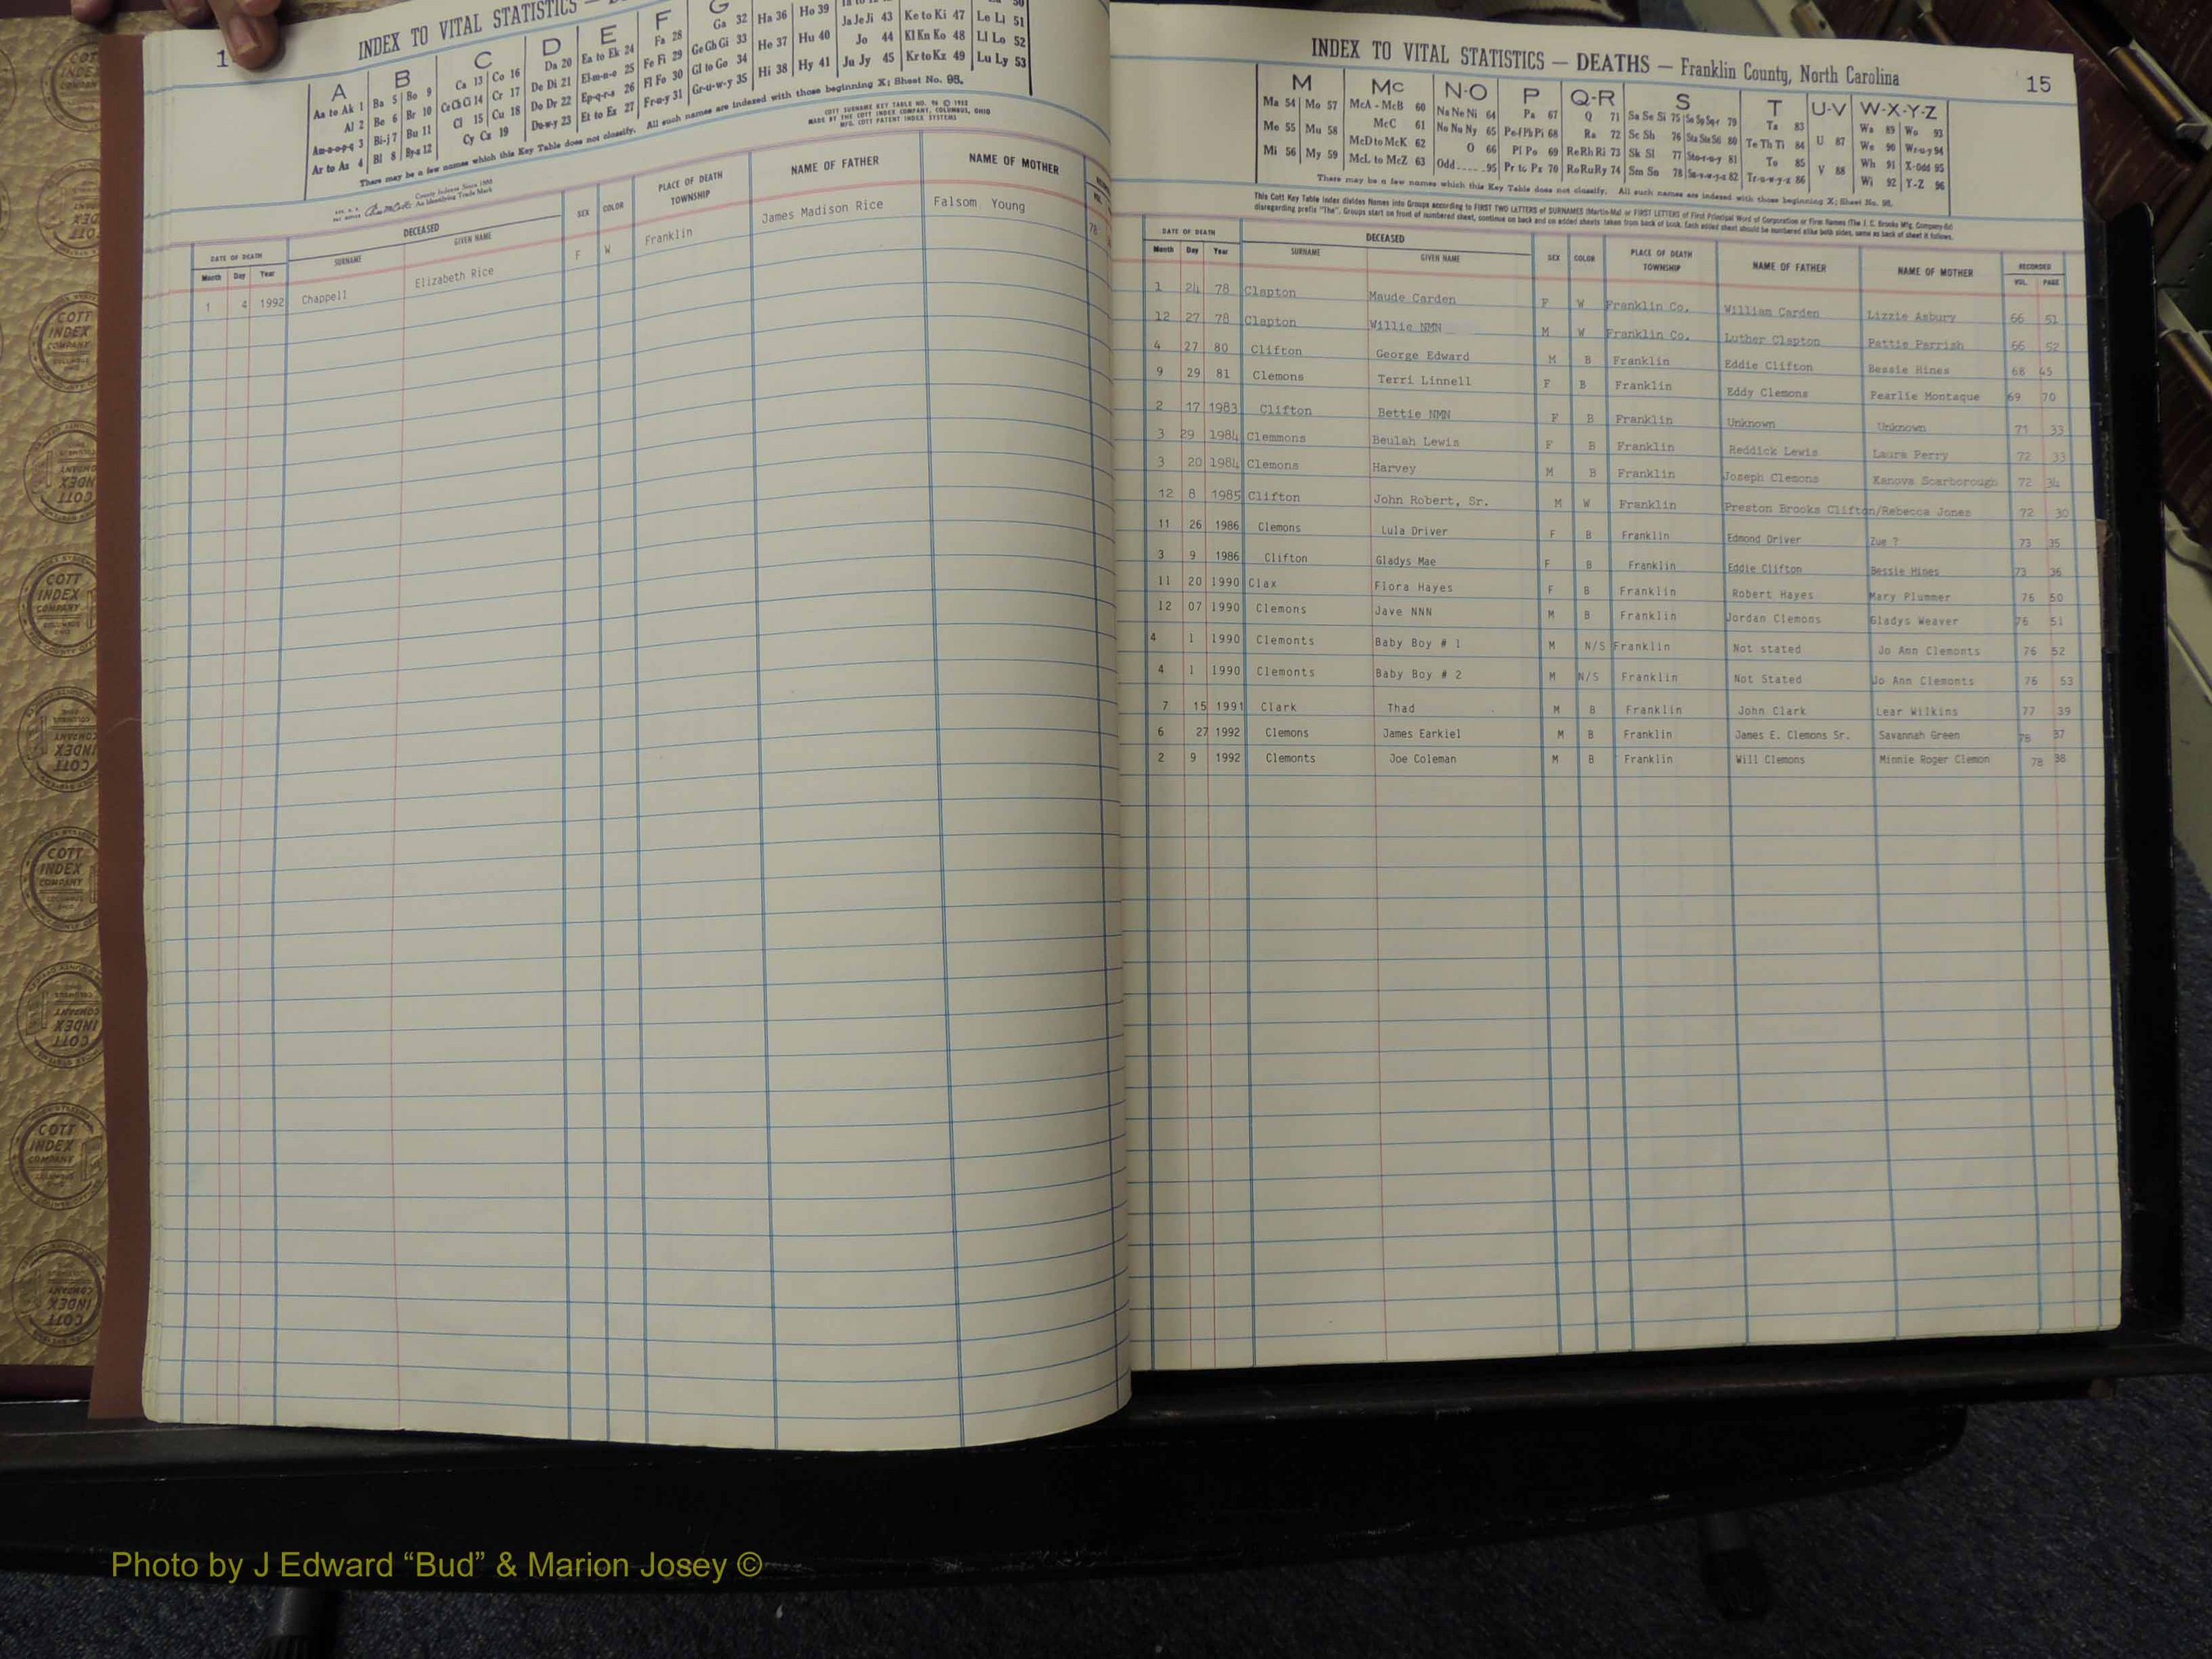 INDEX TO VITAL STATISTICS —
A B C D E F G
Aa to Ak 1 | Ba 5 | Bo 9 | Ca 13 | Co 16 | Da 20 | Ea to Ek 24 | Fa 28 | Ga 32 | Ha 36 | Ho 39
Al 2 | Be 6 | Br 10 | Ce Ch Ci 14 | Cr 17 | De Di 21 | El-m-n-o 25 | Fe Fi 29 | Ge Gh Gi 33 | He 37 | Hu 40 | Ja Je Ji 43 | Ke to Ki 47 | Le Li 51
Am-n-o-p-q 3 | Bi-j 7 | Bu 11 | Cl 15 | Cu 18 | Do Dr 22 | Ep-q-r-s 26 | Fl Fo 30 | Gl to Go 34 | Hi 38 | Hy 41 | Jo 44 | Kl Kn Ko 48 | Ll Lo 52
Ar to Az 4 | Bl 8 | By-z 12 | Cy Cz 19 | Du-w-y 23 | Et to Ez 27 | Fr-u-y 31 | Gr-u-w-y 35 | Ju Jy 45 | Kr to Kz 49 | Lu Ly 53
There may be a few names which this Key Table does not classify. All such names are indexed with those beginning X; Sheet No. 98.
COTT SURNAME KEY TABLE NO.
MADE BY THE COTT INDEX COMPANY, COLUMBUS, OHIO
MFG. COTT PATENT INDEX SYSTEMS
County Indexes Since 1888
An Identifying Trade Mark
DATE OF DEATH DECEASED SEX COLOR PLACE OF DEATH TOWNSHIP NAME OF FATHER NAME OF MOTHER
Month Day Year SURNAME GIVEN NAME
1 4 1992 Chappell Elizabeth Rice F W Franklin James Madison Rice Falsom Young 78
INDEX TO VITAL STATISTICS — DEATHS — Franklin County, North Carolina 15
M Mc N-O P Q-R S T U-V W-X-Y-Z
Ma 54 | Mo 57 | McA - McB 60 | Na Ne Ni 64 | Pa 67 | Q 71 | Sa Se Si 75 | 79 | Ta 83 | Wa 89 | Wo 93
Me 55 | Mu 58 | McC 61 | No Nu Ny 65 | Pe-f Ph Pi 68 | Ra 72 | Sc Sh 76 | 80 | Te Th Ti 84 | U 87 | We 90 | Wr-u-y 94
Mi 56 | My 59 | McD to McK 62 | O 66 | Pl Po 69 | Re Rh Ri 73 | Sk Sl 77 | Sto-r-u-y 81 | To 85 | V 88 | Wh 91 | X-Odd 95
McL to McZ 63 | Odd 95 | Pr to Pz 70 | Ro Ru Ry 74 | Sm Sn 78 | 82 | Tr-u-w-y-z 86 | Wi 92 | Y-Z 96
There may be a few names which this Key Table does not classify. All such names are indexed with those beginning X; Sheet No. 98.
This Cott Key Table Index divides Names into Groups according to FIRST TWO LETTERS of SURNAMES (Martin-Ma) or FIRST LETTERS of First Principal Word of Corporation or Firm Names (The J. C. Brooks Mfg. Company-Br)
disregarding prefix "The". Groups start on front of numbered sheet, continue on back and on added sheets taken from back of book. Each added sheet should be numbered alike both sides, same as back of sheet it follows.
DATE OF DEATH DECEASED SEX COLOR PLACE OF DEATH TOWNSHIP NAME OF FATHER NAME OF MOTHER RECORDED
Month Day Year SURNAME GIVEN NAME VOL. PAGE
1 24 78 Clapton Maude Carden F W Franklin Co. William Carden Lizzie Asbury 66 51
12 27 78 Clapton Willie NMN M W Franklin Co. Luther Clapton Pattie Parrish 66 52
4 27 80 Clifton George Edward M B Franklin Eddie Clifton Bessie Hines 68 45
9 29 81 Clemons Terri Linnell F B Franklin Eddy Clemons Pearlie Montaque 69 70
2 17 1983 Clifton Bettie NMN F B Franklin Unknown Unknown 71 33
3 29 1984 Clemmons Beulah Lewis F B Franklin Reddick Lewis Laura Perry 72 33
3 20 1984 Clemons Harvey M B Franklin Joseph Clemons Kanova Scarborough 72 34
12 8 1985 Clifton John Robert, Sr. M W Franklin Preston Brooks Clifton/Rebecca Jones 72 30
11 26 1986 Clemons Lula Driver F B Franklin Edmond Driver Zue ? 73 35
3 9 1986 Clifton Gladys Mae F B Franklin Eddie Clifton Bessie Hines 73 36
11 20 1990 Clax Flora Hayes F B Franklin Robert Hayes Mary Plummer 76 50
12 07 1990 Clemons Jave NNN M B Franklin Jordan Clemons Gladys Weaver 76 51
4 1 1990 Clemonts Baby Boy # 1 M N/S Franklin Not stated Jo Ann Clemonts 76 52
4 1 1990 Clemonts Baby Boy # 2 M N/S Franklin Not Stated Jo Ann Clemonts 76 53
7 15 1991 Clark Thad M B Franklin John Clark Lear Wilkins 77 39
6 27 1992 Clemons James Earkiel M B Franklin James E. Clemons Sr. Savannah Green 78 37
2 9 1992 Clemonts Joe Coleman M B Franklin Will Clemons Minnie Roger Clemon 78 38
COTT INDEX COMPANY
Photo by J Edward “Bud” & Marion Josey ©